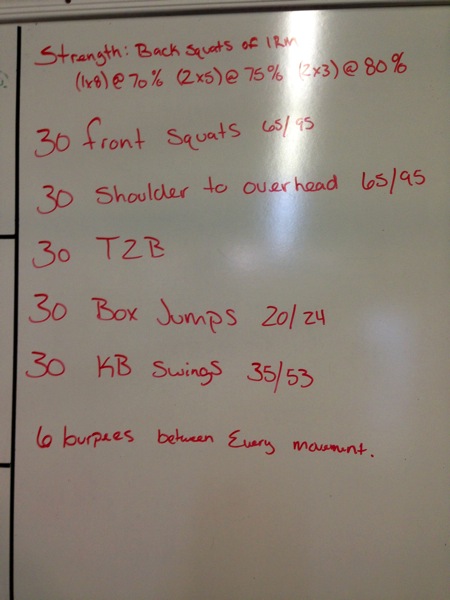 Strength: Back squats of 1RM
(1x8)@70% (2x5)@75% (2x3)@80%
30 front squats 65/95
30 Shoulder to overhead 65/95
30 T2B
30 Box Jumps 20/24
30 KB Swings 35/53
6 burpees between Every movement.